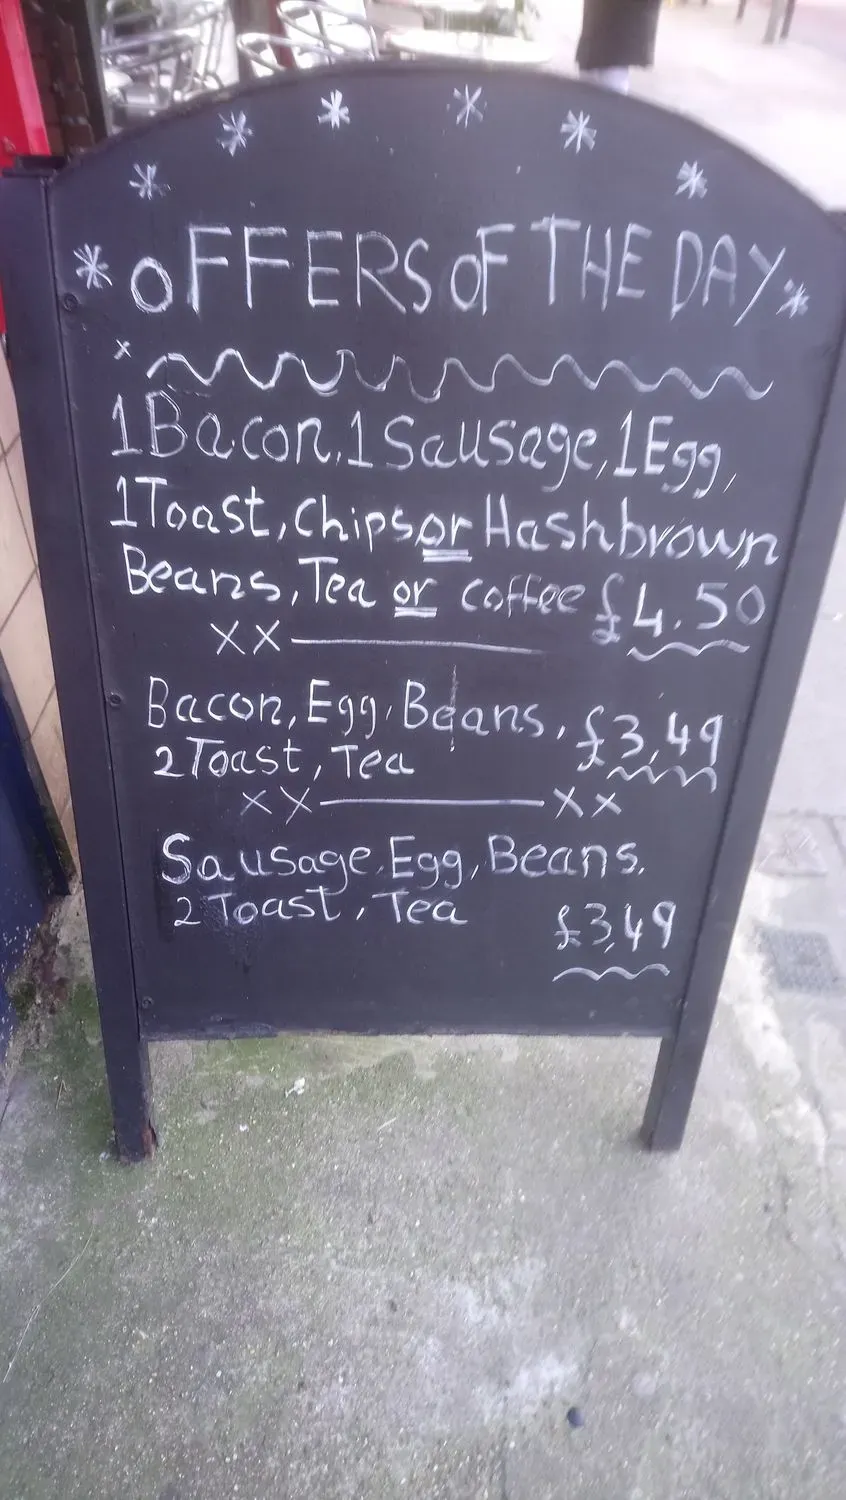 OFFERS OF THE DAY
1 Bacon, 1 Sausage, 1 Egg,
1 Toast, Chips or Hashbrown
Beans, Tea or coffee £4.50
XX
Bacon, Egg, Beans, £3,49
2 Toast, Tea
XX XX
Sausage, Egg, Beans.
2 Toast, Tea £3,49